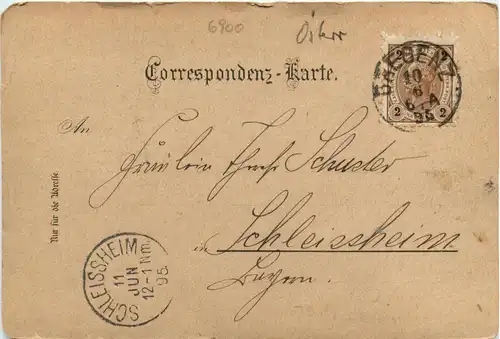 6900
Österr
Correspondenz-Karte.
BREGENZ
10
6
6-A
95
2 2
An
Fräulein Therese Schuster
in Schleissheim
Bayern.
Nur für die Adresse.
SCHLEISSHEIM
11
JUN
12-1 Nm.
95